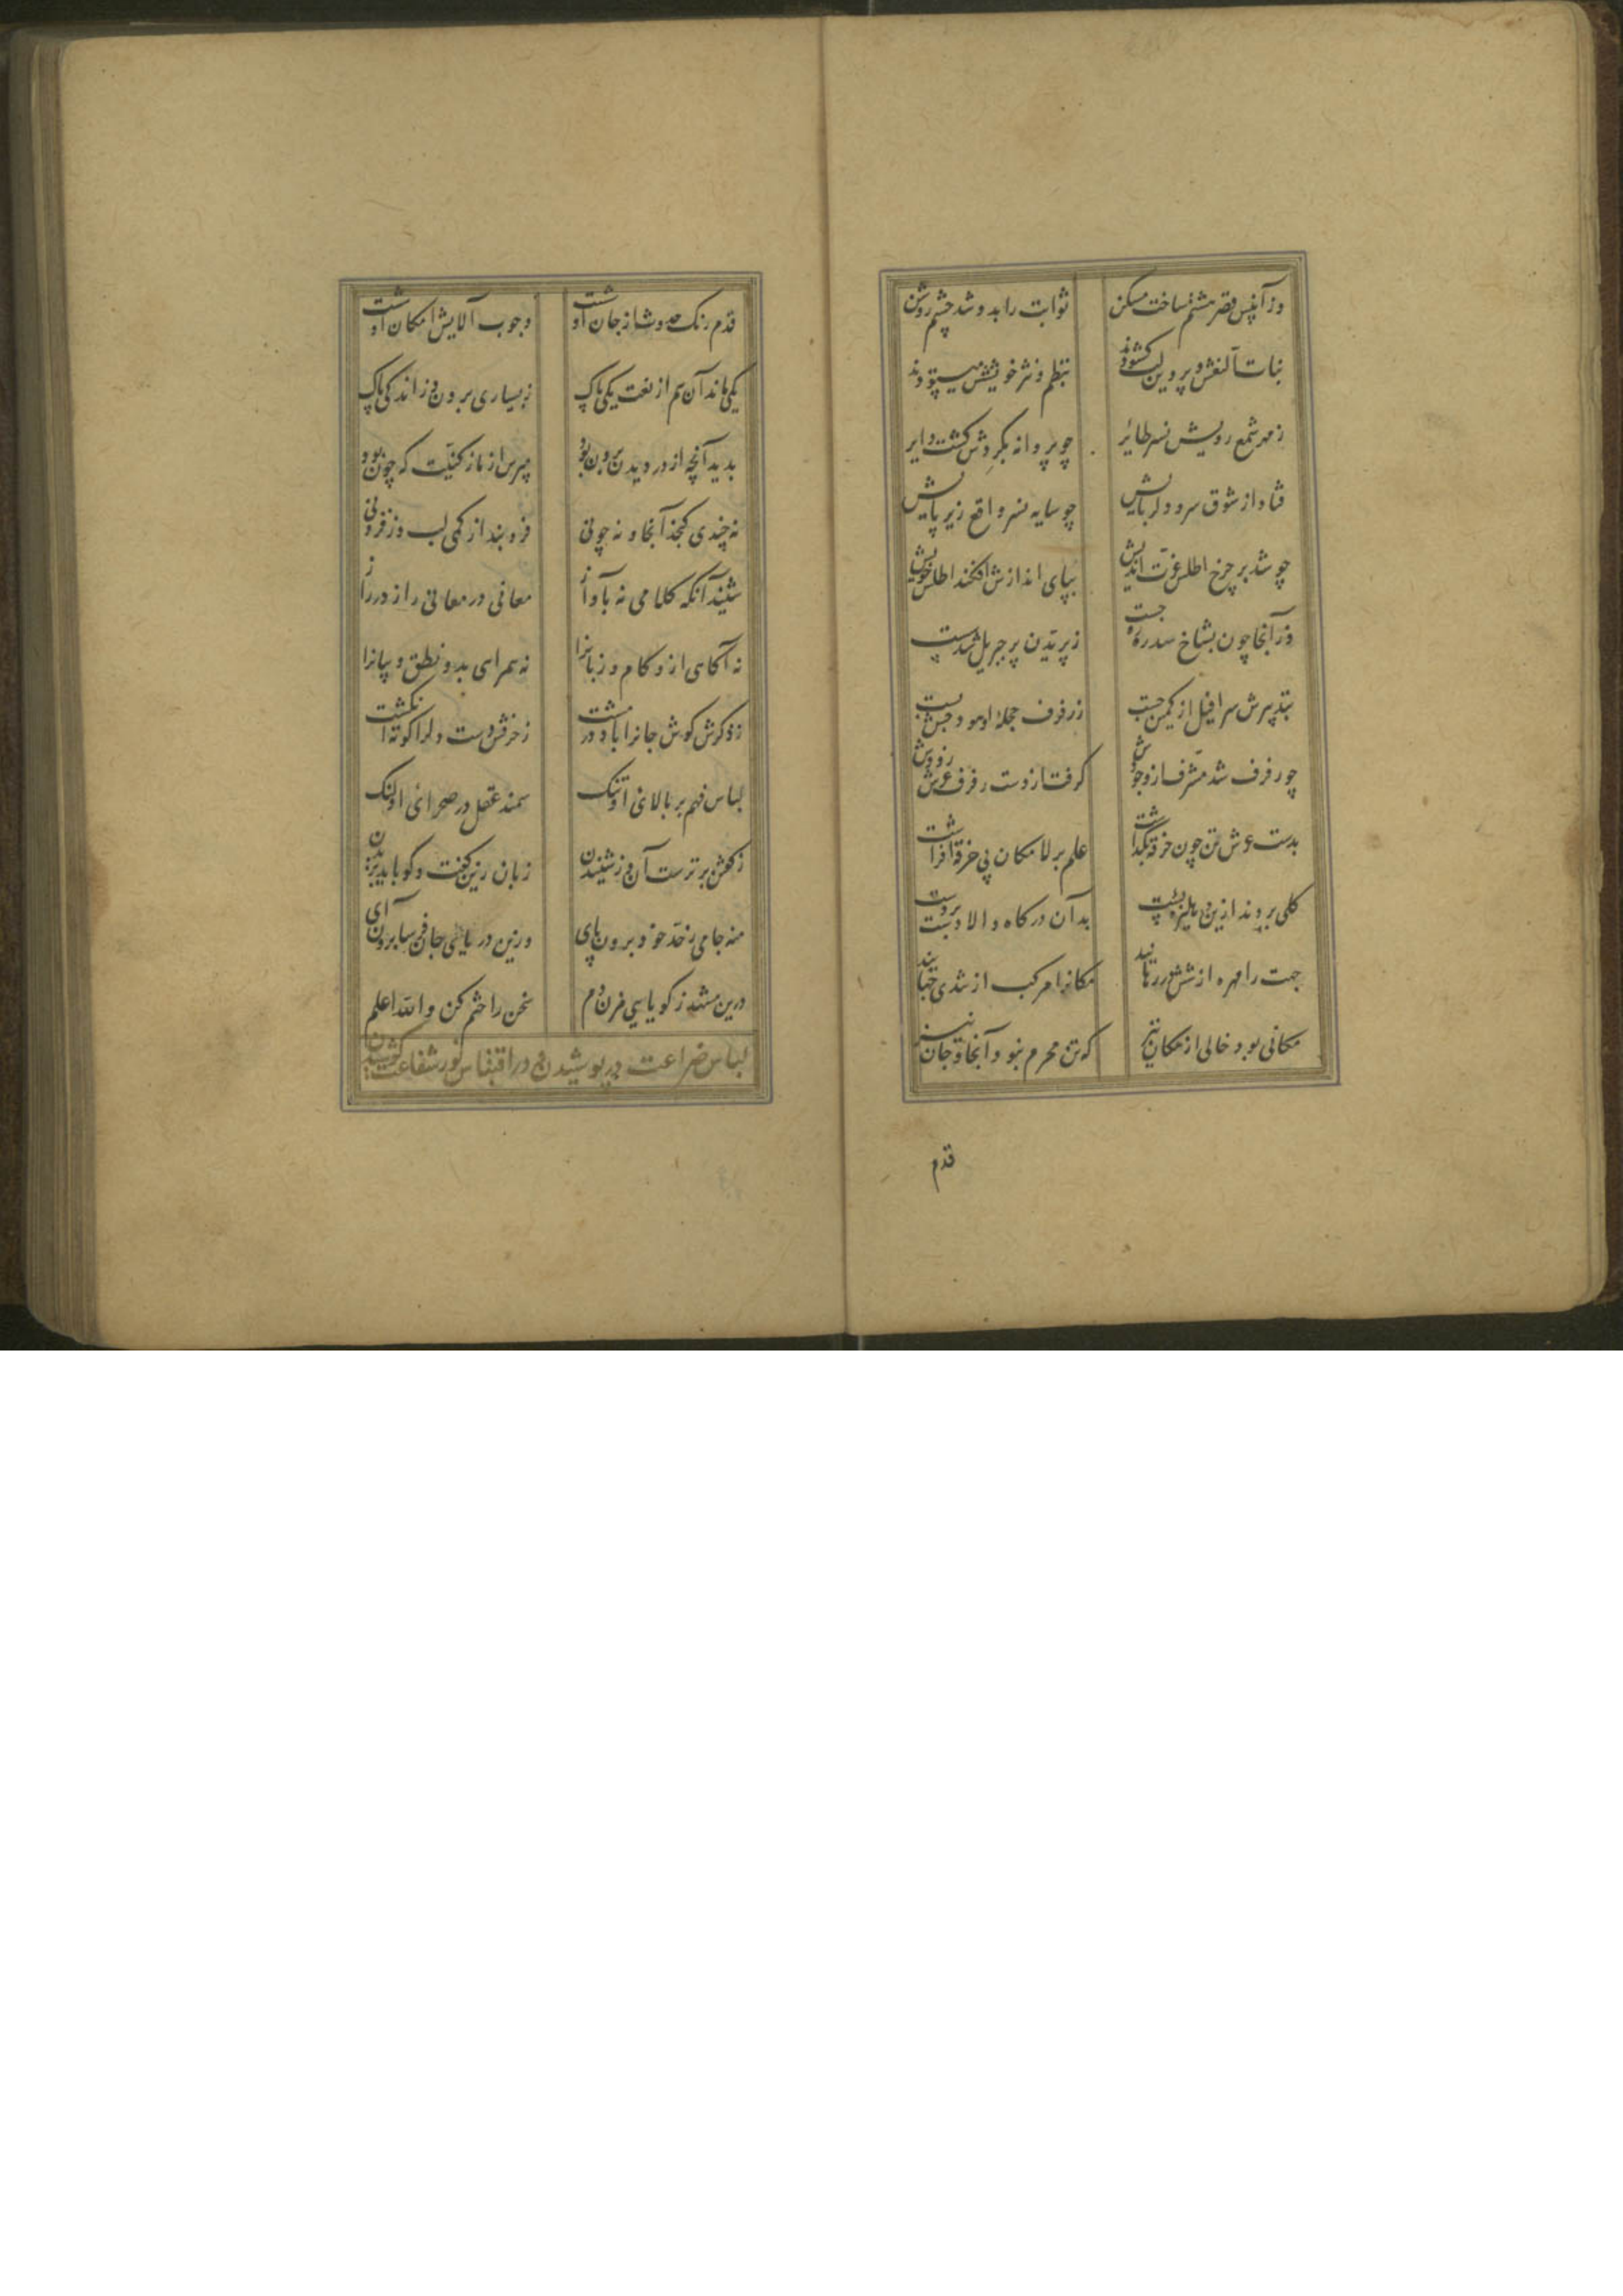 وز آنپس قصر هشتم ساخت مسکن ثوابت را بدو شد چشم روشن
بنات النعش و پروین لب گشودند بنظم و نثر خویشش میستودند
ز مهر شمع رویش نسر طائر چو پروانه بگردش گشت دایر
فتاد از شوق سرو دلربایش چو سایه نسر واقع زیر پایش
چو شد بر چرخ اطلس عزت اندیش بپای اندازش افکند اطلس خویش
وز آنجا چون بشاخ سدره جست ز پریدن پر جبریل شد سست
سرافیل از کمین جست ز رفرف حجله او
چو رفرف شد مشرف از وجودش گرفت از دست رفرف عرش زودش
بدست عرش تن چون خرقه بگذاشت علم بر لامکان بی خرقه افراشت
گلی بردند ازین دهلیزه پست بدان درگاه والا دست بر دست
جهت را مهره از ششدر رهانید مکانرا مرکب از تندی جهانید
مکانی بود خالی از مکان نیز که تن محرم نبود آنجا و جان نیز
قدم
قدم رنگ حدوث از جان او شست وجوب آلایش امکان او شست
یکی ماند آن هم از نعت یکی پاک ز بسیاری برون وز اندکی پاک
بدید آنچه از در دیدن برون بود مپرس از ما ز کیفیت که چون بود
نه چندی گنجد آنجا و نه چونی فرو بند از کمی لب وز فزونی
شنید آنگه کلامی نه بآواز معانی در معانی راز در راز
نه آگاهی ازو کام و زبانرا نه همراهی بدو نطق و بیانرا
ز درکش گوش جانرا باد در مشت ز حرفش دست دلرا کوته انگشت
لباس فهم بر بالای او تنگ سمند عقل در صحرای او لنگ
ز گفتن برترست آن وز شنیدن زبان زین گفت و گو باید بریدن
منه جامی ز حد خود برون پای وزین دریای جان فرسا برون آی
درین مشهد ز گویایی مزن دم سخن را ختم کن والله اعلم
لباس ضراعت در پوشیدن و در اقتباس نور شفاعت کوشیدن